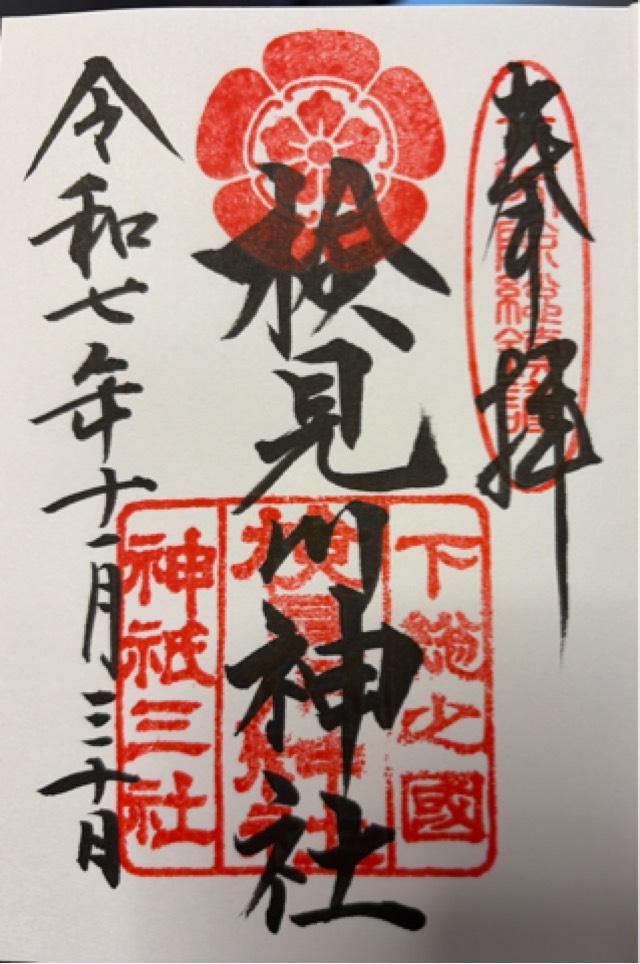 奉拝
下総之國
検見川神社
検見川神社
神祇三社
令和七年十一月三十日